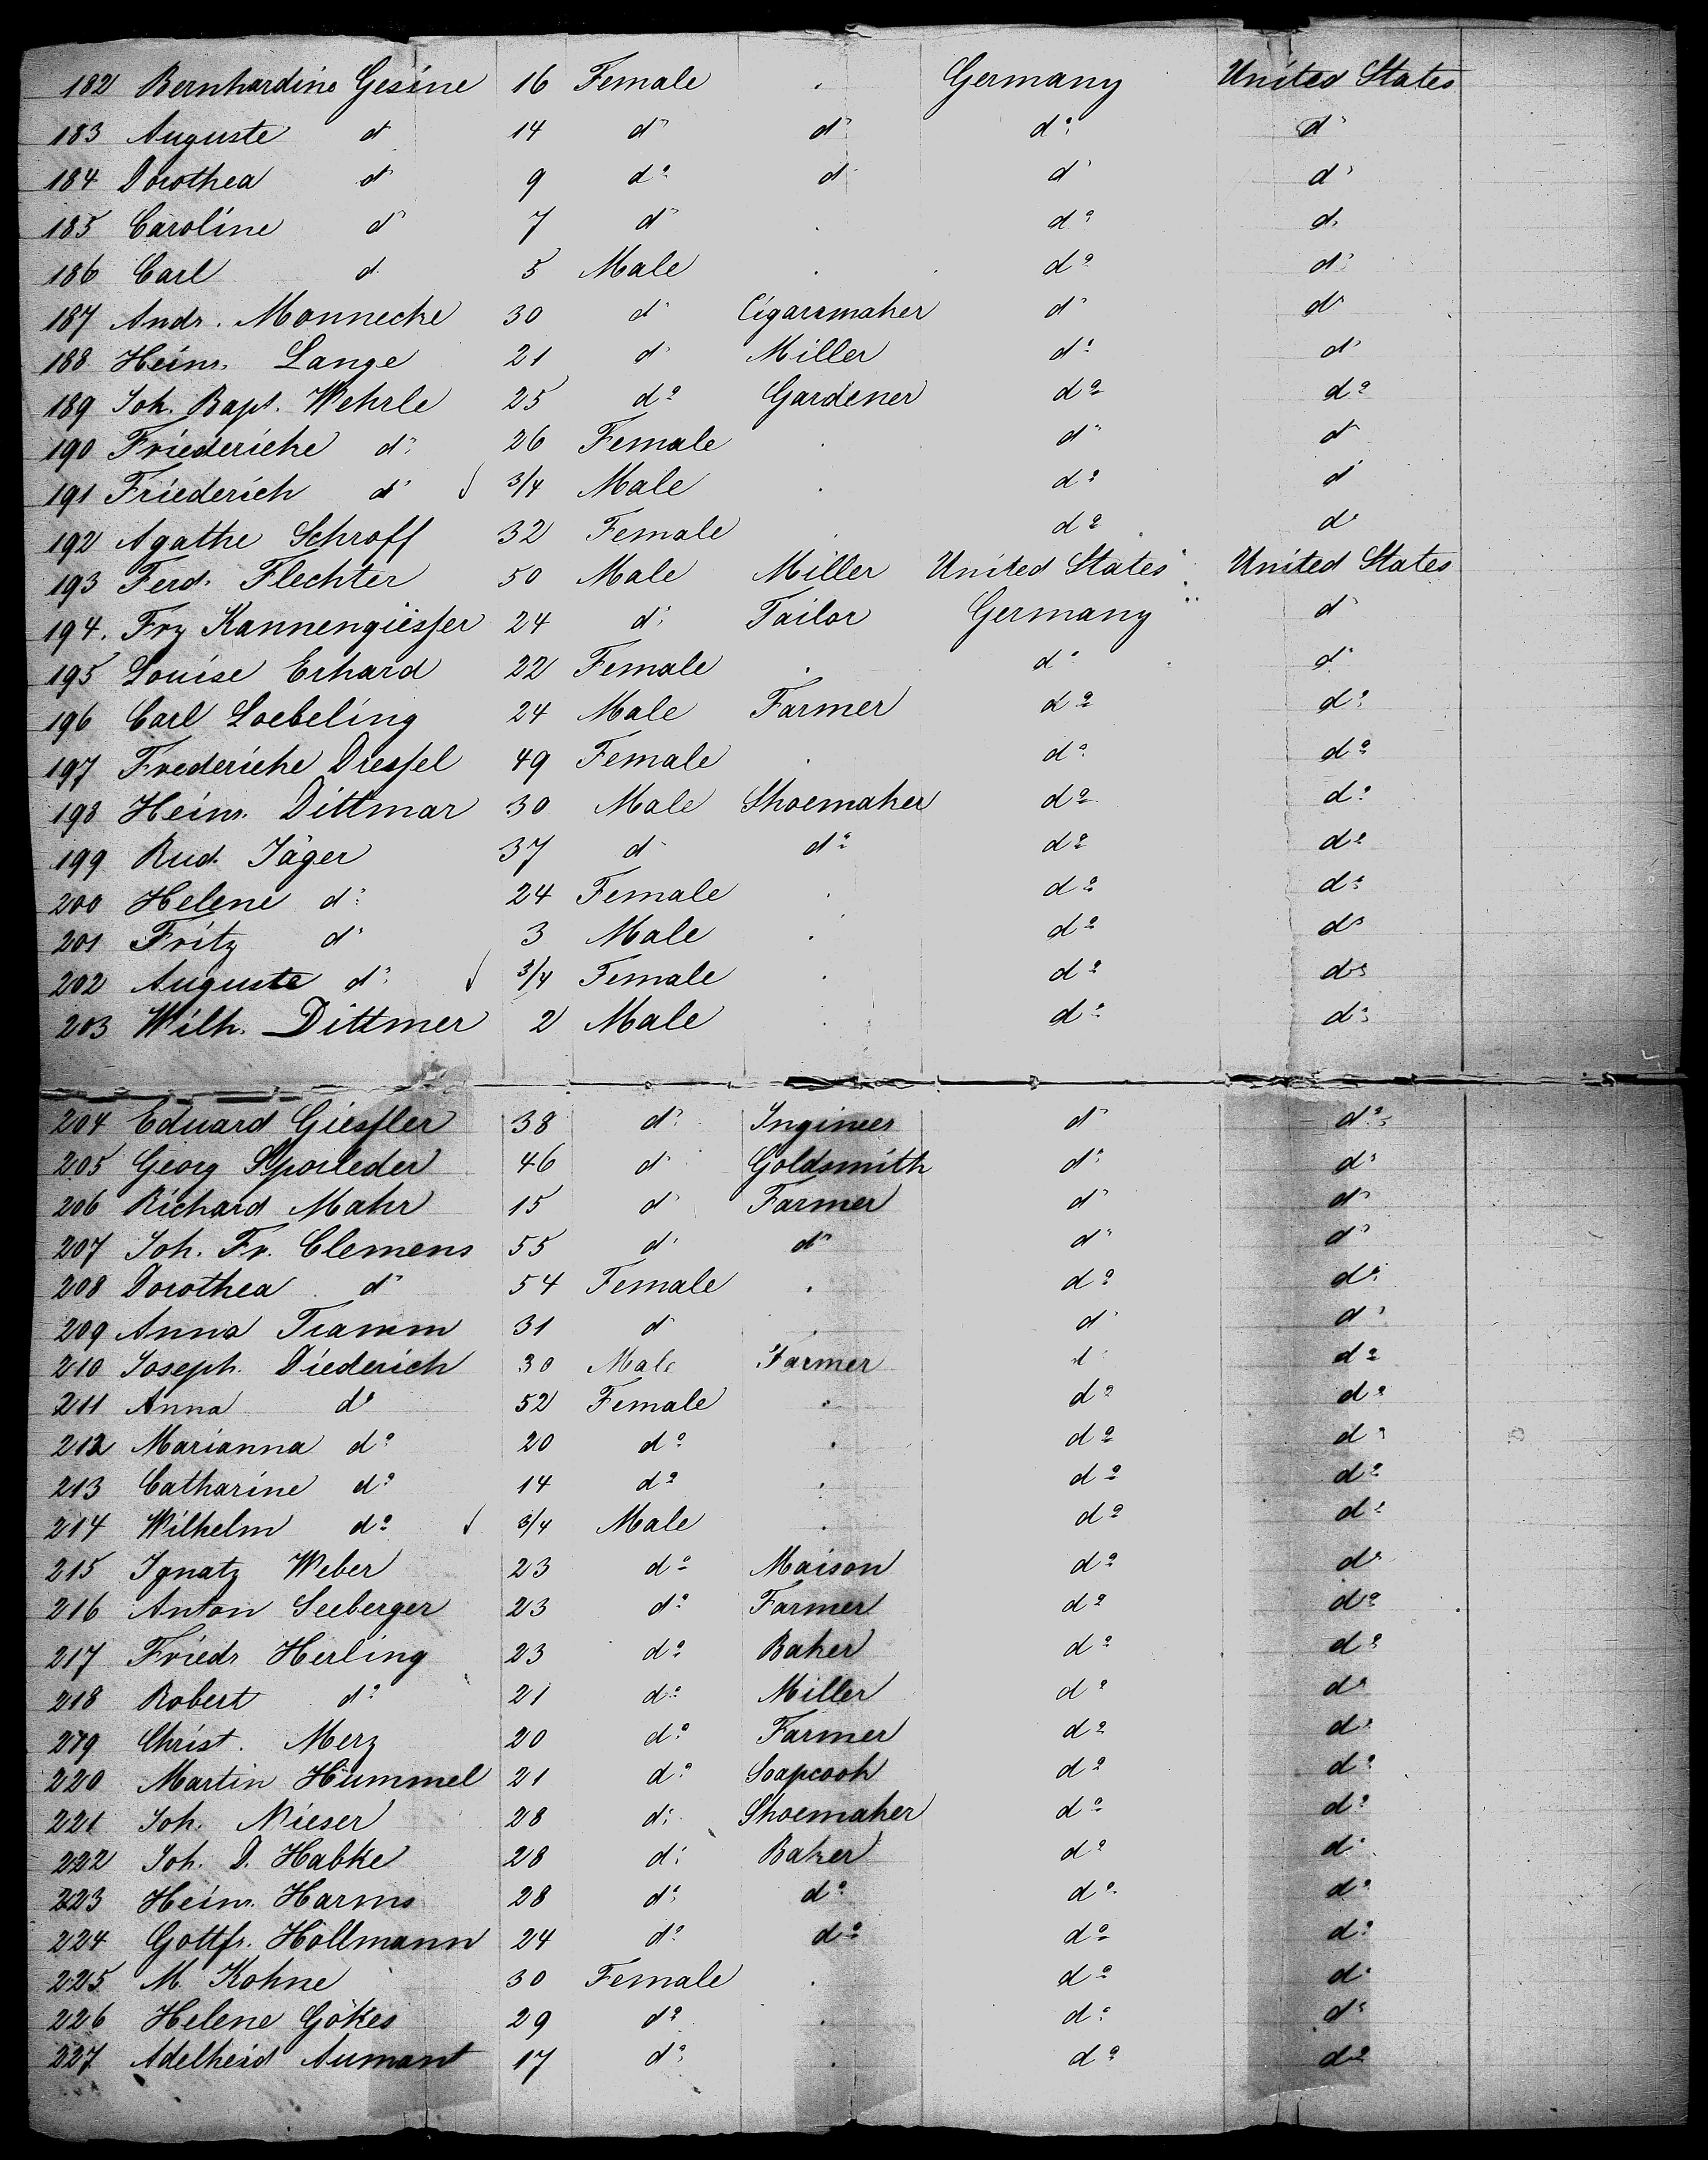 182 Bernhardine Gesine 16 Female . Germany United States
183 Auguste do 14 do do do do
184 Dorothea do 9 do do do do
185 Caroline do 7 do . do do
186 Carl do 5 Male . do do
187 Andr. Monnecke 30 do Cigarsmaker do do
188 Heinr. Lange 21 do Miller do do
189 Joh. Bapt. Wehrle 25 do Gardener do do
190 Friederiche do 26 Female . do do
191 Friederich do 3/4 Male . do do
192 Agathe Schroff 32 Female . do do
193 Ferd. Flechter 50 Male Miller United States United States
194. Frz Kannengiesser 24 do Tailor Germany do
195 Louise Erhard 22 Female . do do
196 Carl Loebeling 24 Male Farmer do do
197 Frederiche Dressel 49 Female . do do
198 Heinr. Dittmar 30 Male Shoemaker do do
199 Rud. Jäger 37 do do do do
200 Helene do 24 Female . do do
201 Fritz do 3 Male . do do
202 Auguste do 3/4 Female . do do
203 Wilh. Dittmer 2 Male . do do
204 Eduard Giessler 38 do Ingineer do do
205 Georg Sporleder 46 do Goldsmith do do
206 Richard Mahr 15 do Farmer do do
207 Joh. Fr. Clemens 55 do do do do
208 Dorothea do 54 Female . do do
209 Anna Tramm 31 do . do do
210 Joseph Diederich 30 Male Farmer do do
211 Anna do 52 Female . do do
212 Marianna do 20 do . do do
213 Catharine do 14 do . do do
214 Wilhelm do 3/4 Male . do do
215 Ignatz Weber 23 do Maison do do
216 Anton Seeberger 23 do Farmer do do
217 Friedr Herling 23 do Baker do do
218 Robert do 21 do Miller do do
219 Christ. Merz 20 do Farmer do do
220 Martin Hummel 21 do Soapcook do do
221 Joh. Nieser 28 do Shoemaker do do
222 Joh. D. Habke 28 do Baker do do
223 Heinr. Harms 28 do do do do
224 Gottfr. Hollmann 24 do do do do
225 M. Kohne 30 Female . do do
226 Helene Gökes 29 do . do do
227 Adelheid Aumant 17 do . do do